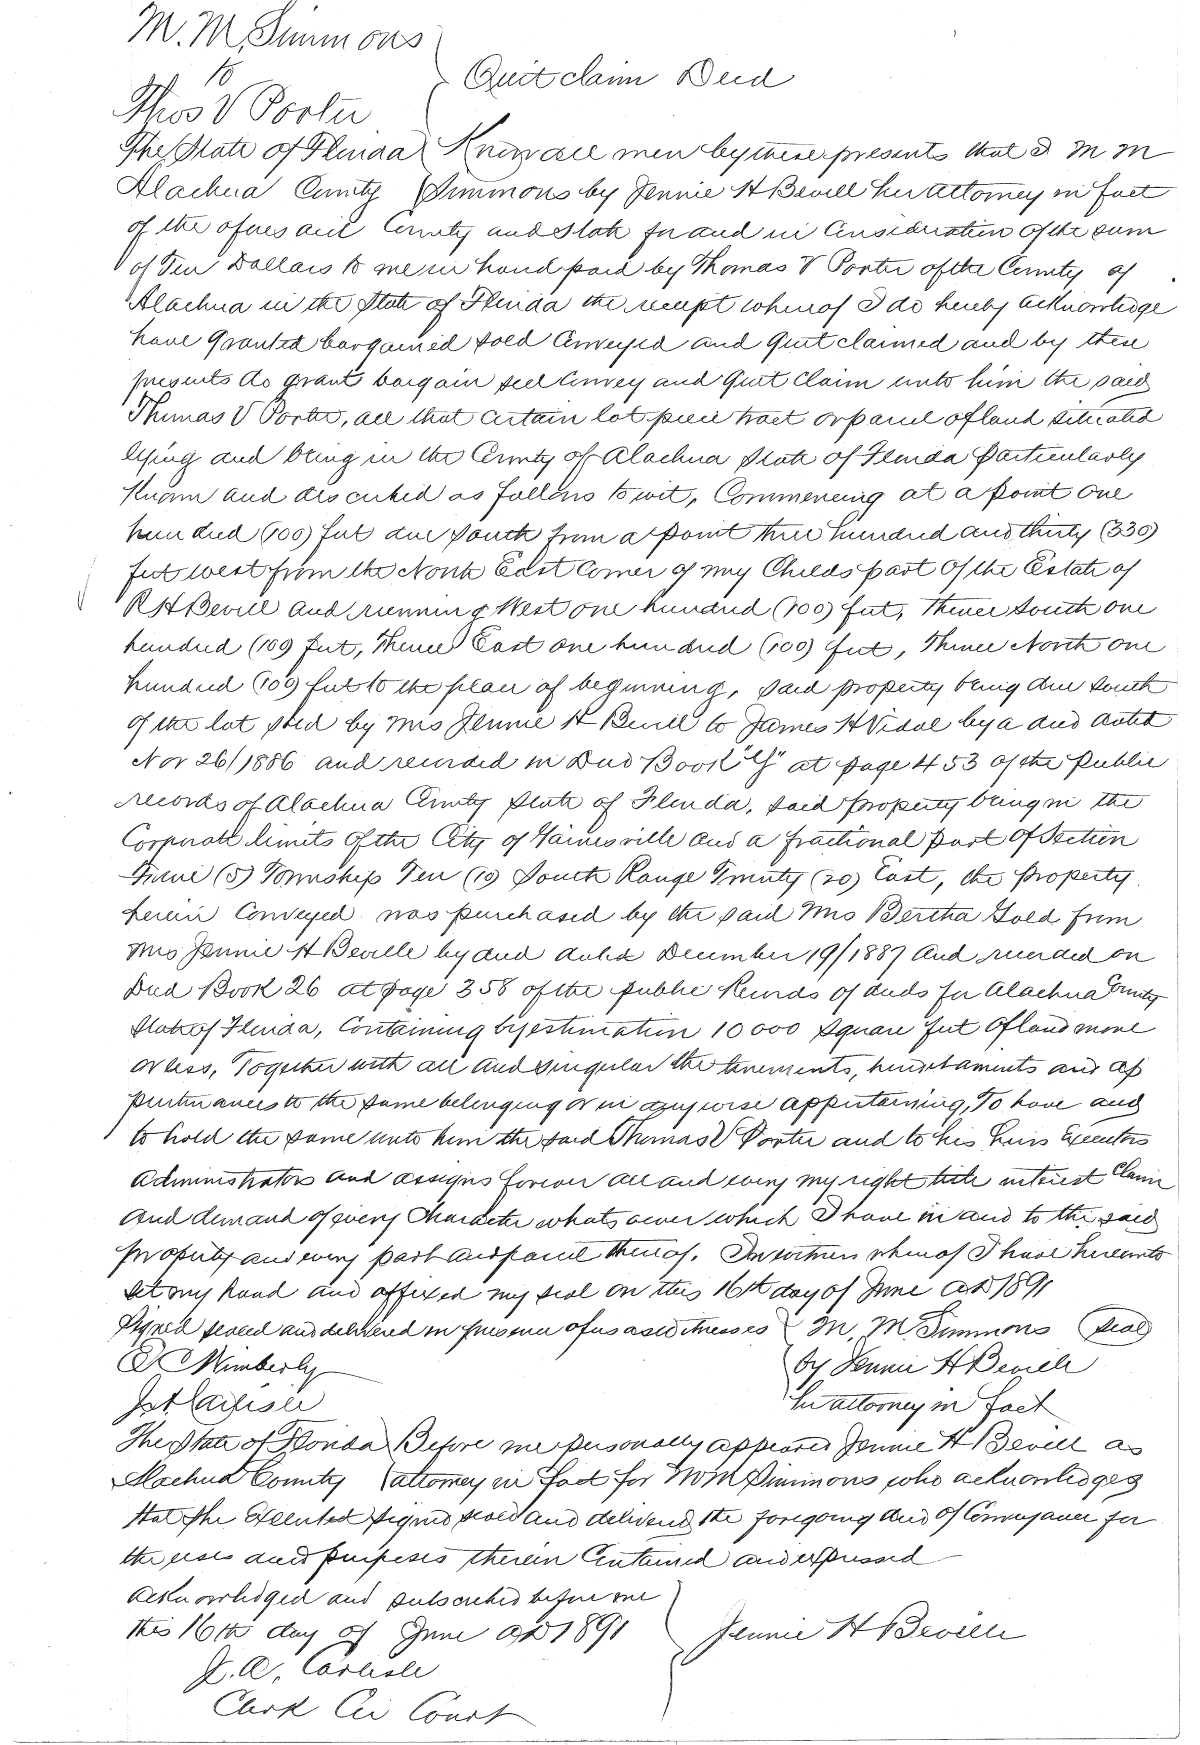 M. M. Simmons
to
Quit claim Deed
Thos V Porter
The State of Florida Know all men by these presents that I M M
Alachua County Simmons by Jennie H Bevill her attorney in fact
of the aforesaid County and State for and in Consideration of the sum
of Ten Dollars to me in hand paid by Thomas V Porter of the County of
Alachua in the State of Florida the receipt whereof I do hereby acknowledge
have granted bargained sold Conveyed and Quit claimed and by these
presents do grant bargain sell Convey and Quit Claim unto him the said
Thomas V Porter, all that certain lot piece tract or parcel of land situated
lying and being in the County of Alachua State of Florida Particularly
Known and described as follows to wit, Commencing at a point one
hundred (100) feet due South from a point three hundred and thirty (330)
feet west from the North East Corner of my Childs part of the Estate of
R H Bevill and running West one hundred (100) feet, Thence South one
hundred (100) feet, Thence East one hundred (100) feet, Thence North one
hundred (100) feet to the place of beginning, said property being due south
of the lot sold by Mrs Jennie H Bevill to James H Vidal by a deed dated
Nov 26/1886 and recorded in Deed Book at page 453 of the public
records of Alachua County State of Florida, said property being in the
Corporate limits of the City of Gainesville and a fractional part of Section
(5) Township Ten (10) South Range Twenty (20) East, the property
herein Conveyed was purchased by the said Mrs Bertha Gold from
Mrs Jennie H Beville by deed dated December 19/1887 and recorded on
Deed Book 26 at page 358 of the public Records of deeds for Alachua County
State of Florida, Containing by estimation 10000 square feet of land more
or less, Together with all and singular the tenements, hereditaments and ap
purtenances to the same belonging or in anywise appertaining, To have and
to hold the same unto him the said Thomas V Porter and to his heirs Executors
Administrators and assigns forever all and every my right title interest Claim
and demand of every Character whatsoever which I have in and to the said
property and every part and parcel thereof. In witness whereof I have hereunto
set my hand and affixed my seal on this 16th day of June AD 1891
Signed sealed and delivered in presence of us as witnesses M. M. Simmons (seal)
Wimberly by Jennie H Beville
Carlisle her attorney in fact
The State of Florida Before me personally appeared Jennie H Bevill as
Alachua County attorney in fact for M M Simmons who acknowledges
that she Executed signed sealed and delivered the foregoing deed of Conveyance for
the uses and purposes therein Contained and expressed
Acknowledged and subscribed before me
this 16th day of June AD 1891 Jennie H Beville
J. A. Carlisle
Clerk Cir Court